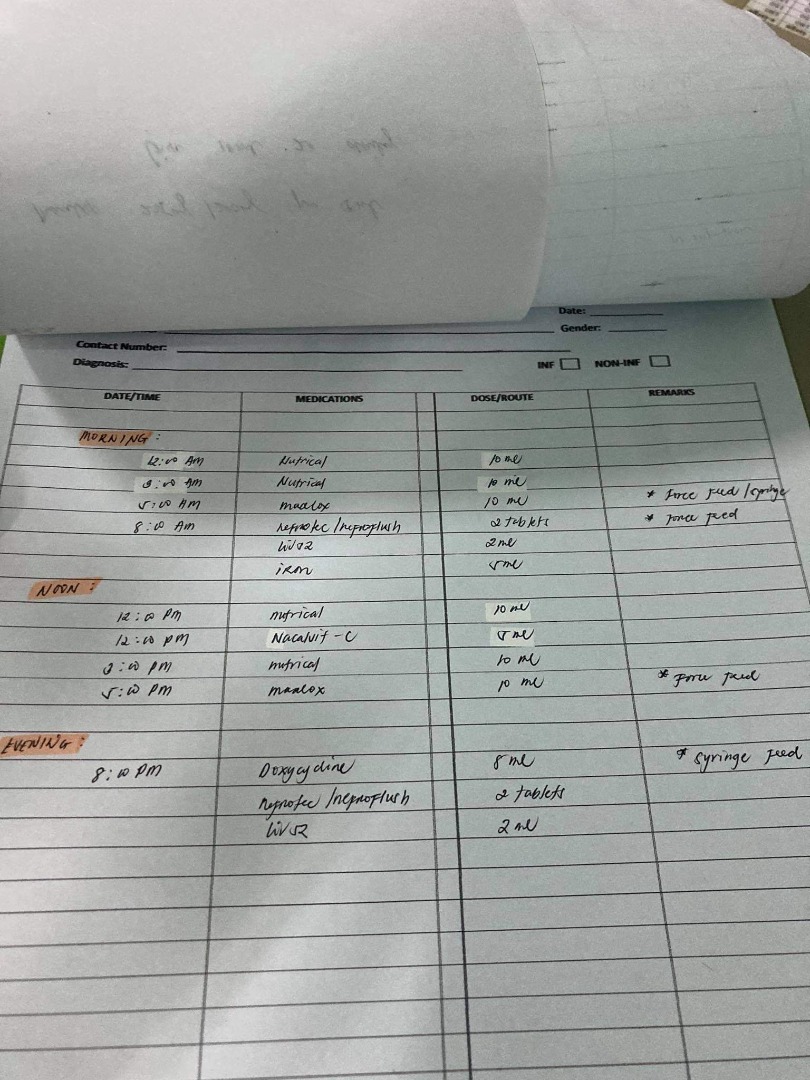 Date:
Gender:
Contact Number:
Diagnosis:
INF NON-INF
DATE/TIME MEDICATIONS DOSE/ROUTE REMARKS
MORNING:
12:00 AM Nutrical 10 ml
3:00 AM Nutrical 10 ml
5:00 AM maalox 10 ml * Force feed /syringe
8:00 AM neprotec /neproflush 2 tablets * Force feed
liv52 2 ml
iron 5 ml
NOON:
12:00 PM nutrical 10 ml
12:00 PM Nacalvit-C 5 ml
3:00 PM nutrical 10 ml
5:00 PM maalox 10 ml * Force feed
EVENING:
8:00 PM Doxycycline 8 ml * syringe feed
neprotec /neproflush 2 tablets
liv52 2 ml